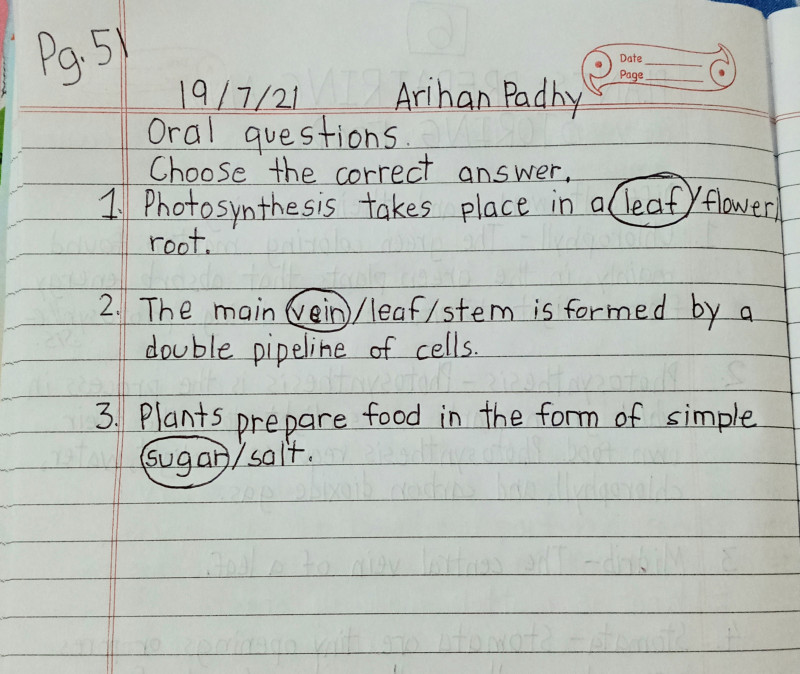 Pg.51
Date
Page
19/7/21 Arihan Padhy
Oral questions.
Choose the correct answer.
1. Photosynthesis takes place in a leaf/flower/
root.
2. The main vein/leaf/stem is formed by a
double pipeline of cells.
3. Plants prepare food in the form of simple
sugar/salt.